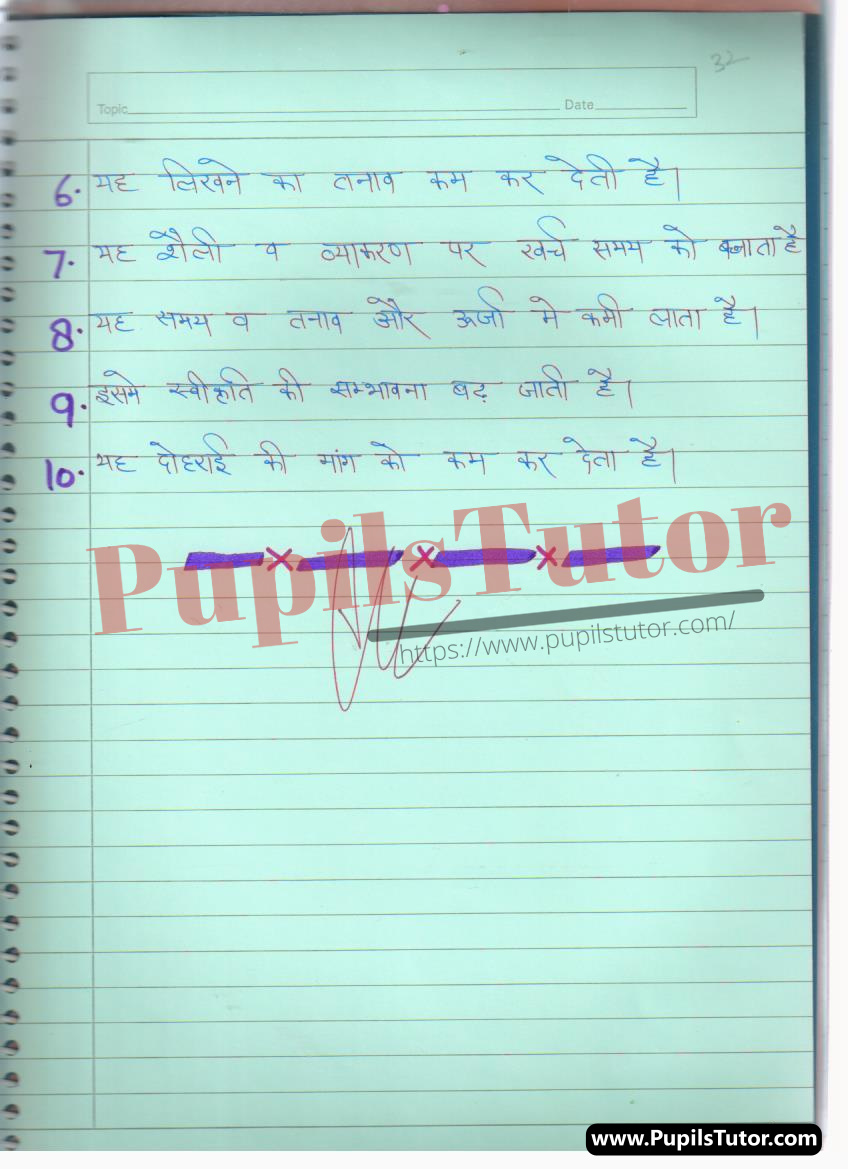 32
Topic Date
6. यह लिखने का तनाव कम कर देती है।
7. यह शैली व व्याकरण पर खर्च समय को बचाता है
8. यह समय व तनाव और ऊर्जा मे कमी लाता है।
9. इसमे स्वीकृति की सम्भावना बढ़ जाती है।
10. यह दोहराई की मांग को कम कर देता है।
PupilsTutor
https://www.pupilstutor.com/
www.PupilsTutor.com